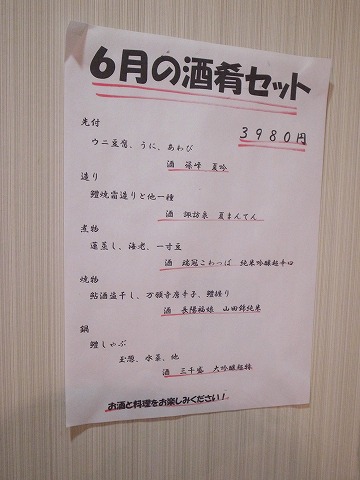 ６月の酒肴セット
３９８０円
先付
ウニ豆腐、うに、あわび
酒 篠峰 夏吟
造り
鱧焼霜造りと他一種
酒 諏訪泉 夏まんてん
煮物
蓮蒸し、海老、一寸豆
酒 瑞冠こわっぱ 純米吟醸超辛口
焼物
鮎酒盗干し、万願寺唐辛子、鱧握り
酒 長陽福娘 山田錦純米
鍋
鱧しゃぶ
玉葱、水菜、他
酒 三千盛 大吟醸超特
お酒と料理をお楽しみください！